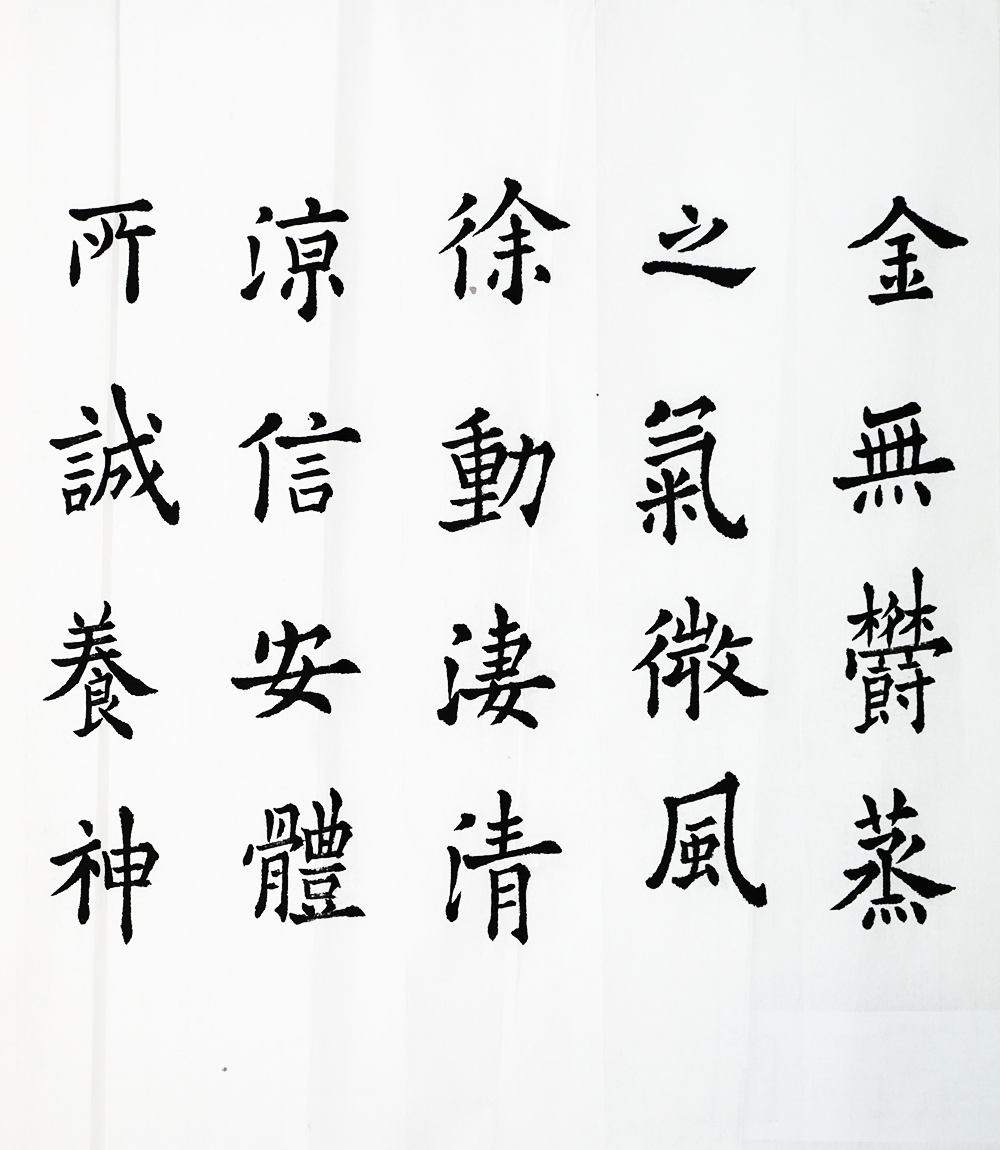 金無欝蒸
之氣微風
徐動淒清
涼信安體
所誠養神